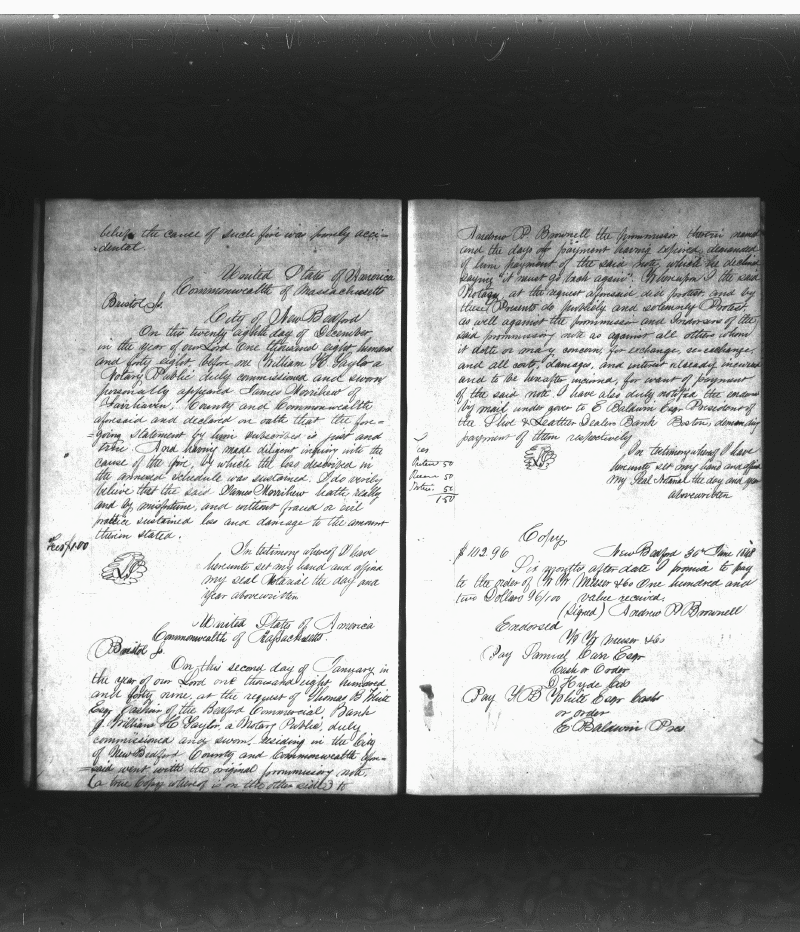 belief the cause of such fire was purely acci-
-dental.
United States of America
Commonwealth of Massachusetts
Bristol Ss.
City of New Bedford
On this twenty eighth day of December
in the year of our Lord One thousand eight hundred
and forty eight, before me William H. Taylor a
Notary Public duly commissioned and sworn
personally appeared James Morrihew of
Fairhaven, County and Commonwealth
aforesaid and declared on oath that the fore=
=going statement by him subscribed is just and
true. And having made diligent inquiry into the
cause of the fire, by which the loss described in
the annexed schedule was sustained, I do verily
believe that the said James Morrihew hath really
and by misfortune, and without fraud or evil
practice sustained loss and damage to the amount
therein stated.
Fees $1.00
In testimony whereof I have
hereunto set my hand and affixed
my seal Notarial the day and
year abovewritten
United States of America
Commonwealth of Massachusetts.
Bristol Ss.
On this second day of January in
the year of our Lord one thousand eight hundred
and forty nine, at the request of Thomas B White
Esq Cashier of the Bedford Commercial Bank
I William H. Taylor, a Notary Public, duly
commissioned and sworn, residing in the City
of New Bedford County and Commonwealth afore=
=said went with the original promissory note,
(a true Copy whereof is on the other side) to
Andrew P. Brownell the promissor therein named
and the days of payment having expired, demanded
of him payment of the said note, which he declined
saying "it must go back again". Whereupon I the said
Notary, at the request aforesaid did protest, and by
these Presents do publicly and solemnly Protest,
as well against the promissor and Indorsers of the
said promissory note as against all others whom
it doth or may concern, for exchange, re-exchange,
and all costs, damages, and interest already incurred
and to be hereafter incurred, for want of payment
of the said note. I have also duly notified the endorsers
by mail under cover to E Baldwin Esqr President of
the Shoe & Leather Dealers Bank Boston, demanding
payment of them respectively
Fees
Protest 50
Record 50
Notices 50
1.50
In testimony whereof I have
hereunto set my hand and affixed
my Seal Notarial the day and year
abovewritten
Copy
$102.96 New Bedford 30th June 1848
Six months after date I promise to pay
to the order of &Co One hundred and
two Dollars 96/100 value received.
(Signed) Andrew P Brownell
Endorsed
&Co
Pay Samuel Carr Esqr
Cash or Order
Hyde
Pay T B White Esqr Cash
or order
E Baldwin Pres